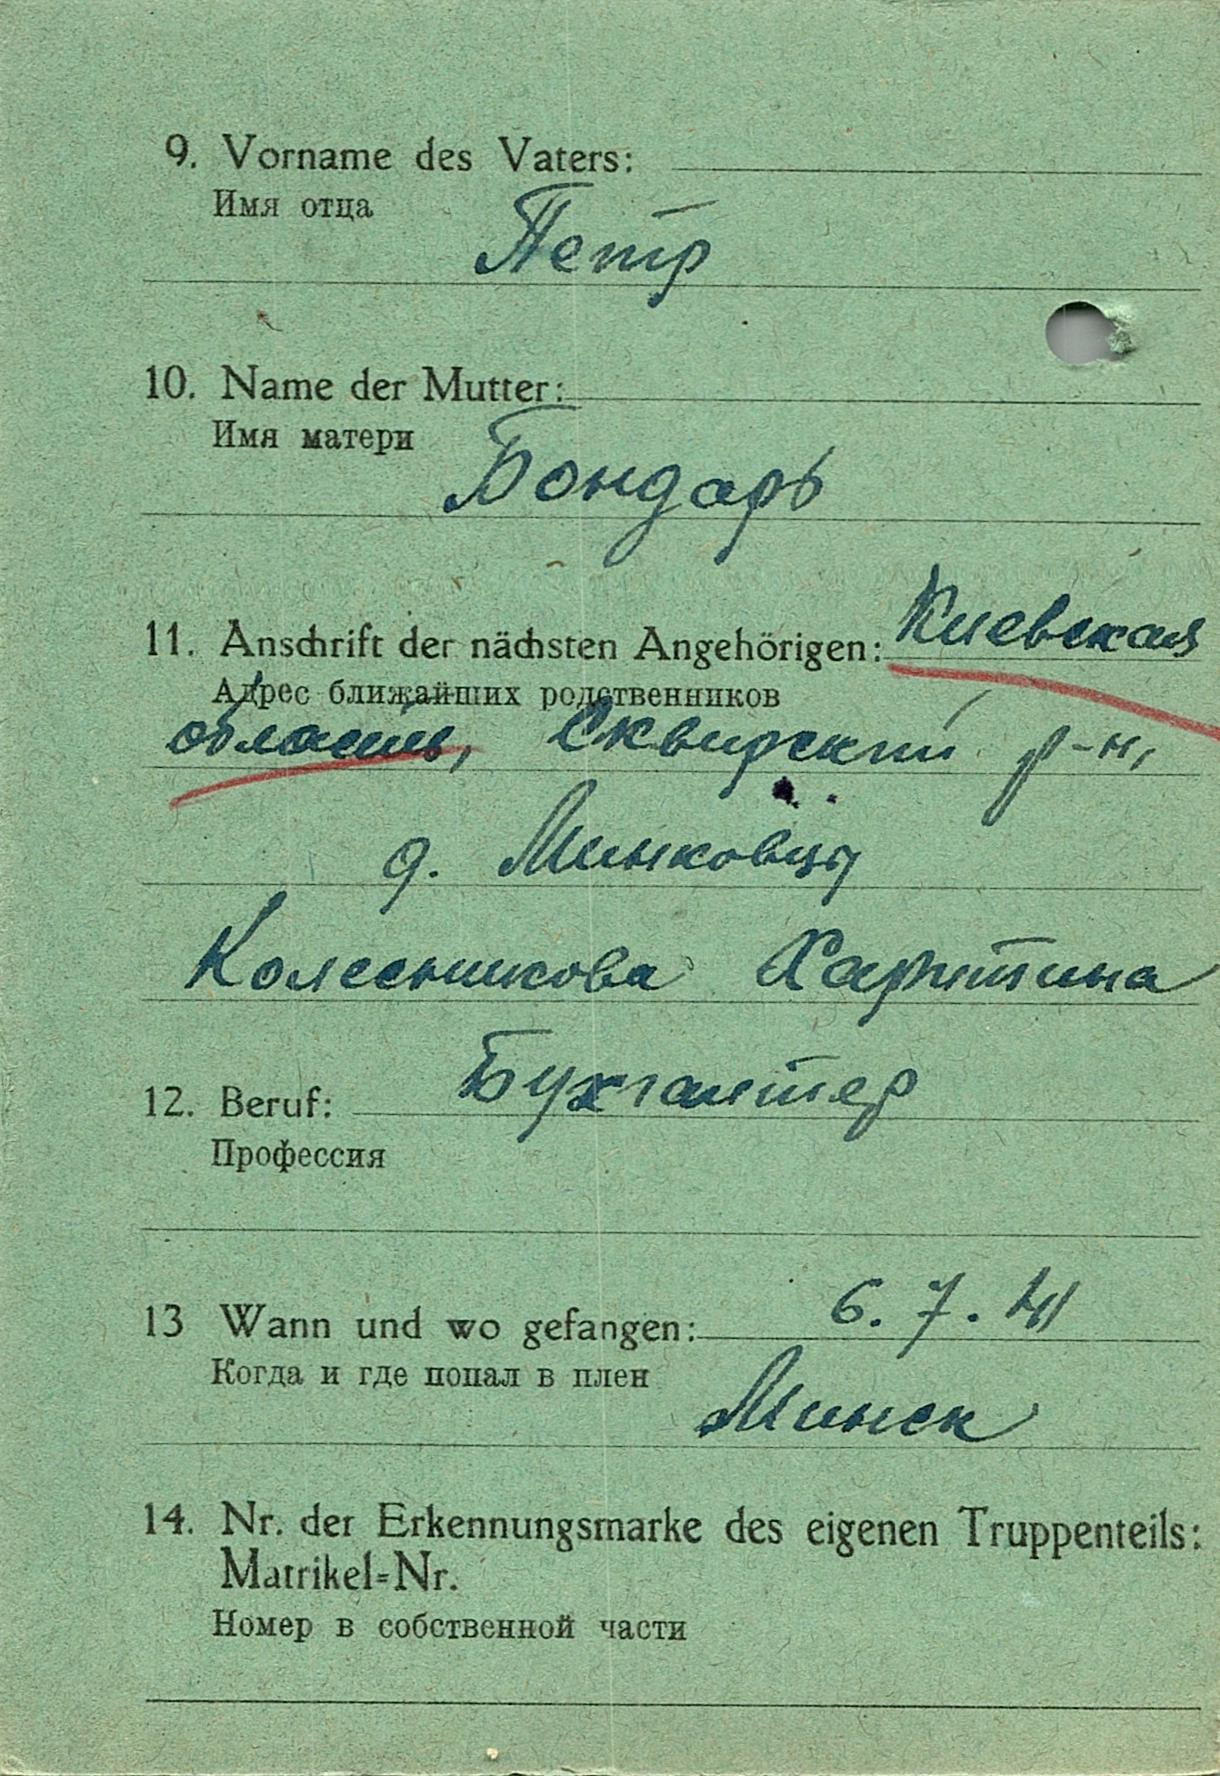 9. Vorname des Vaters:
Имя отца
Петр
10. Name der Mutter:
Имя матери
Бондарь
11. Anschrift der nächsten Angehörigen: Киевская
Адрес ближайших родственников
область, Сквирский р-н,
д. Минковцы
Колесникова Харитина
Бухгалтер
12. Beruf:
Профессия
13 Wann und wo gefangen: 6. 7. 41
Когда и где попал в плен
Минск
14. Nr. der Erkennungsmarke des eigenen Truppenteils:
Matrikel=Nr.
Номер в собственной части